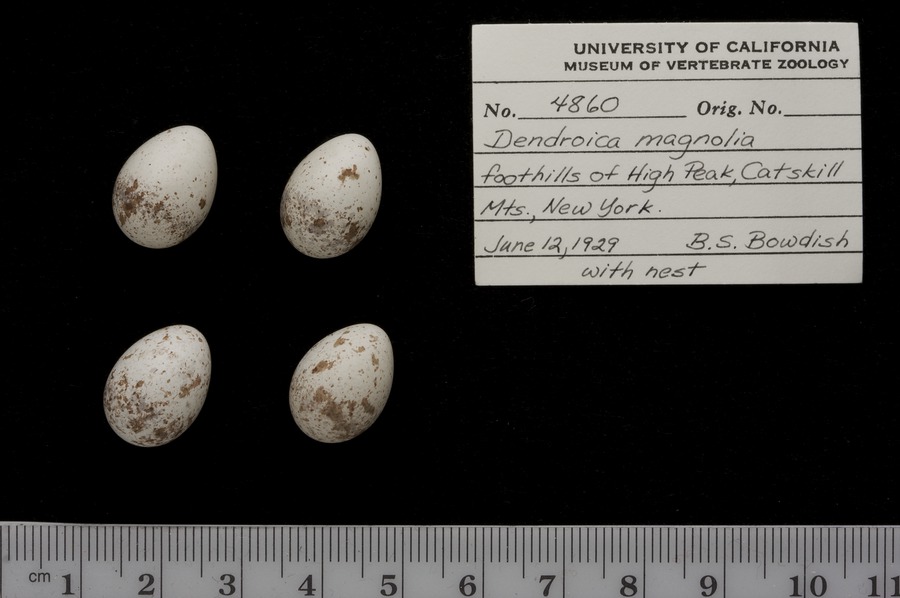 UNIVERSITY OF CALIFORNIA
MUSEUM OF VERTEBRATE ZOOLOGY
No. 4860 Orig. No.
Dendroica magnolia
foothills of High Peak, Catskill
Mts., New York.
June 12, 1929 B.S. Bowdish
with nest
cm 1 2 3 4 5 6 7 8 9 10 11